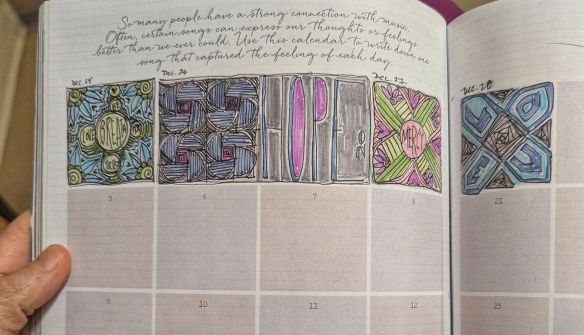 So many people have a strong connection with music.
Often, certain songs can express our thoughts or feelings
better than we ever could. Use this calendar to write down one
song that captured the feeling of each day.
Dec. 25 Dec. 26 Dec. 27 Dec. 28
THE GREAT HOPE MERCY LOVE
5 6 7 8 21
9 10 11 12 25